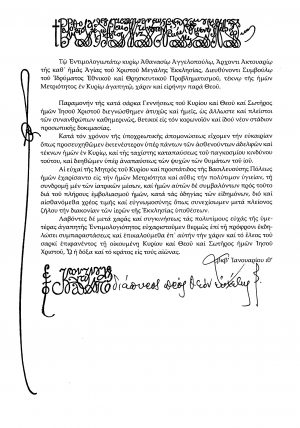 Τῷ Ἐντιμολογιωτάτῳ κυρίῳ Ἀθανασίῳ Ἀγγελοπούλῳ, Ἄρχοντι Ἀκτουαρίῳ
τῆς καθ’ ἡμᾶς Ἁγίας τοῦ Χριστοῦ Μεγάλης Ἐκκλησίας, Διευθύνοντι Συμβούλῳ
τοῦ Ἱδρύματος Ἐθνικοῦ καὶ Θρησκευτικοῦ Προβληματισμοῦ, τέκνῳ τῆς ἡμῶν
Μετριότητος ἐν Κυρίῳ ἀγαπητῷ, χάριν καὶ εἰρήνην παρὰ Θεοῦ.
Παραμονὴν τῆς κατὰ σάρκα Γεννήσεως τοῦ Κυρίου καὶ Θεοῦ καὶ Σωτῆρος
ἡμῶν Ἰησοῦ Χριστοῦ διεγνώσθημεν ἀτυχῶς καὶ ἡμεῖς, ὡς ἄλλωστε καὶ πλεῖστοι
τῶν συνανθρώπων καθημερινῶς, θετικοὶ εἰς τὸν κορωνοϊὸν καὶ ἰδοὺ νέον στάδιον
προσωπικῆς δοκιμασίας.
Κατὰ τὸν χρόνον τῆς ὑποχρεωτικῆς ἀπομονώσεως εἴχομεν τὴν εὐκαιρίαν
ὅπως προσευχηθῶμεν ἐκτενέστερον ὑπὲρ πάντων τῶν ἀσθενούντων ἀδελφῶν καὶ
τέκνων ἡμῶν ἐν Κυρίῳ, καὶ τῆς ταχίστης καταπαύσεως τοῦ παγκοσμίου κινδύνου
τούτου, καὶ δεηθῶμεν ὑπὲρ ἀναπαύσεως τῶν ψυχῶν τῶν θυμάτων τοῦ ἰοῦ.
Αἱ εὐχαὶ τῆς Μητρὸς τοῦ Κυρίου καὶ προστάτιδος τῆς Βασιλευούσης Πόλεως
ἡμῶν ἐχαρίσαντο εἰς τὴν ἡμῶν Μετριότητα καὶ αὖθις τὴν πολύτιμον ὑγιείαν, τῇ
συνδρομῇ μὲν τῶν ἰατρικῶν μέσων, καὶ ἡμῶν αὐτῶν δὲ συμβαλόντων πρὸς τοῦτο
διὰ τοῦ πλήρους ἐμβολιασμοῦ ἡμῶν, κατὰ τὰς ὁδηγίας τῶν εἰδημόνων, διὸ καὶ
αἰσθανόμεθα χρέος τιμῆς καὶ εὐγνωμοσύνης ὅπως συνεχίσωμεν μετὰ πλείονος
ζήλου τὴν διακονίαν τῶν ἱερῶν τῆς Ἐκκλησίας ὑποθέσεων.
Λαβόντες δὲ μετὰ χαρᾶς καὶ συγκινήσεως τὰς πολυτίμους εὐχὰς τῆς ὑμε-
τέρας ἀγαπητῆς Ἐντιμολογιότητος εὐχαριστοῦμεν θερμῶς ἐπὶ τῇ πρόφρονι ἐκδη-
λώσει συμπαραστάσεως καὶ ἐπικαλούμεθα ἐπ’ αὐτὴν τὴν χάριν καὶ τὸ ἔλεος τοῦ
σαρκὶ ἐπιφανέντος τῇ οἰκουμένῃ Κυρίου καὶ Θεοῦ καὶ Σωτῆρος ἡμῶν Ἰησοῦ
Χριστοῦ, ᾯ ἡ δόξα καὶ τὸ κράτος εἰς τοὺς αἰῶνας.
͵βκβ’ Ἰανουαρίου ιθ’